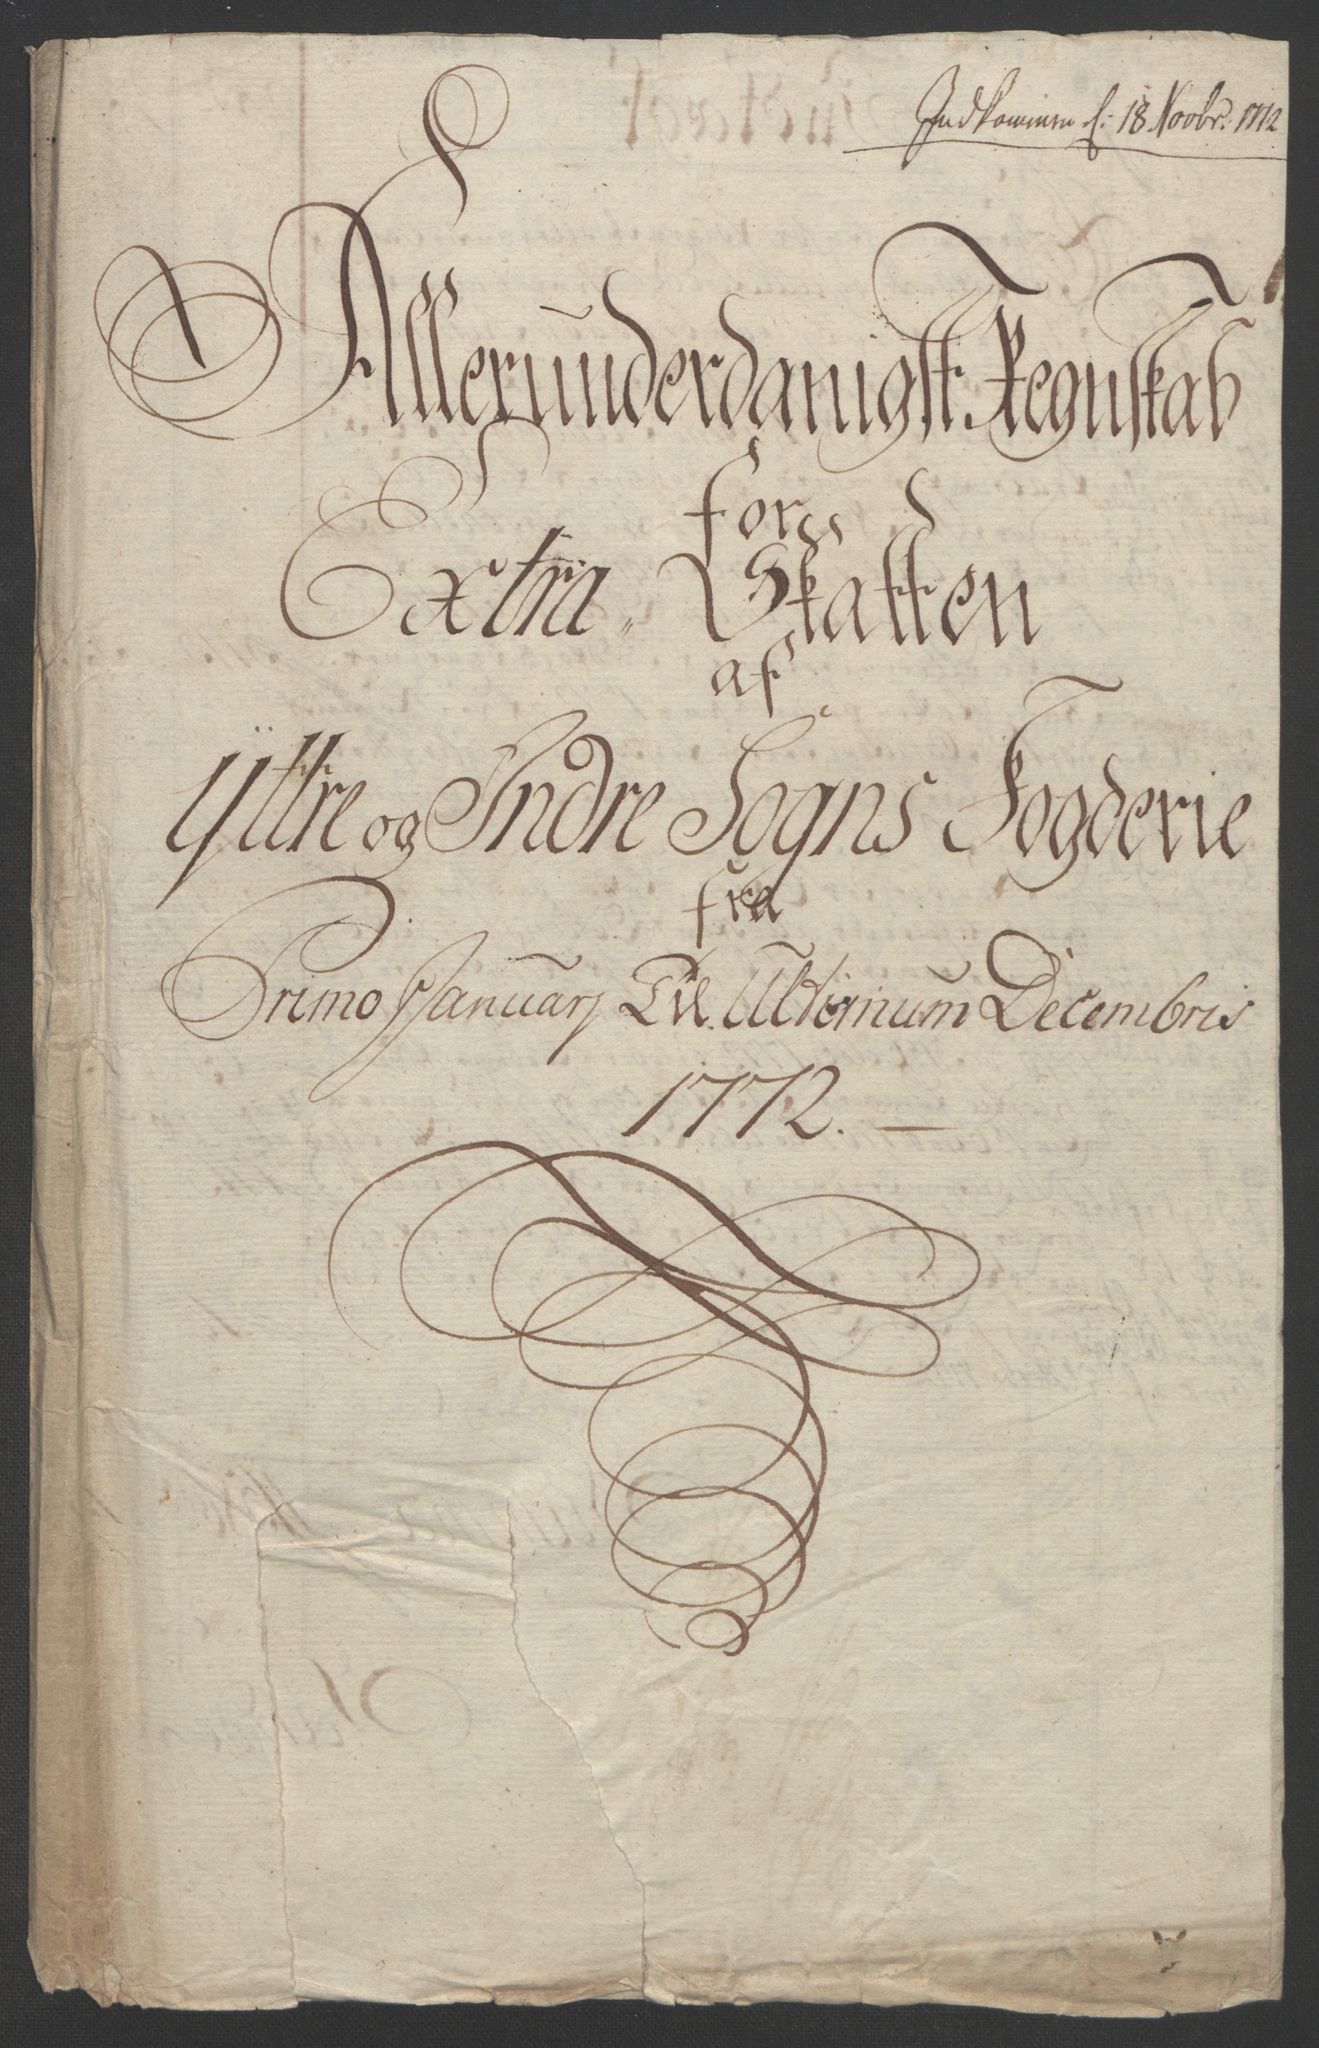 Indkommen d: 18 Novbr. 1772
Allerunderdanigst Regnskab
for
Extra Skatten
af
Yttre og Indre Sogns Fogderie
fra
Primo Januarj Til Ultimum Decembris
1772.